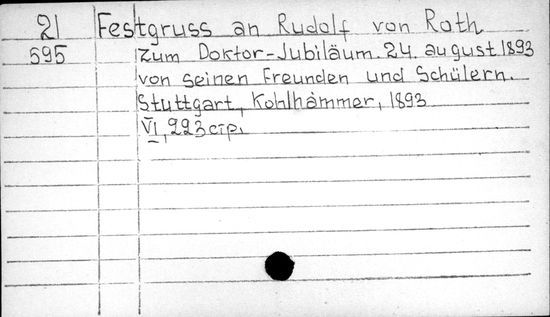 21 Festgruss an Rudolf von Roth
595 zum Doktor-Jubiläum. 24. august 1893
von seinen Freunden und Schülern.
Stuttgart, Kohlhammer, 1893
VI, 223 стр.